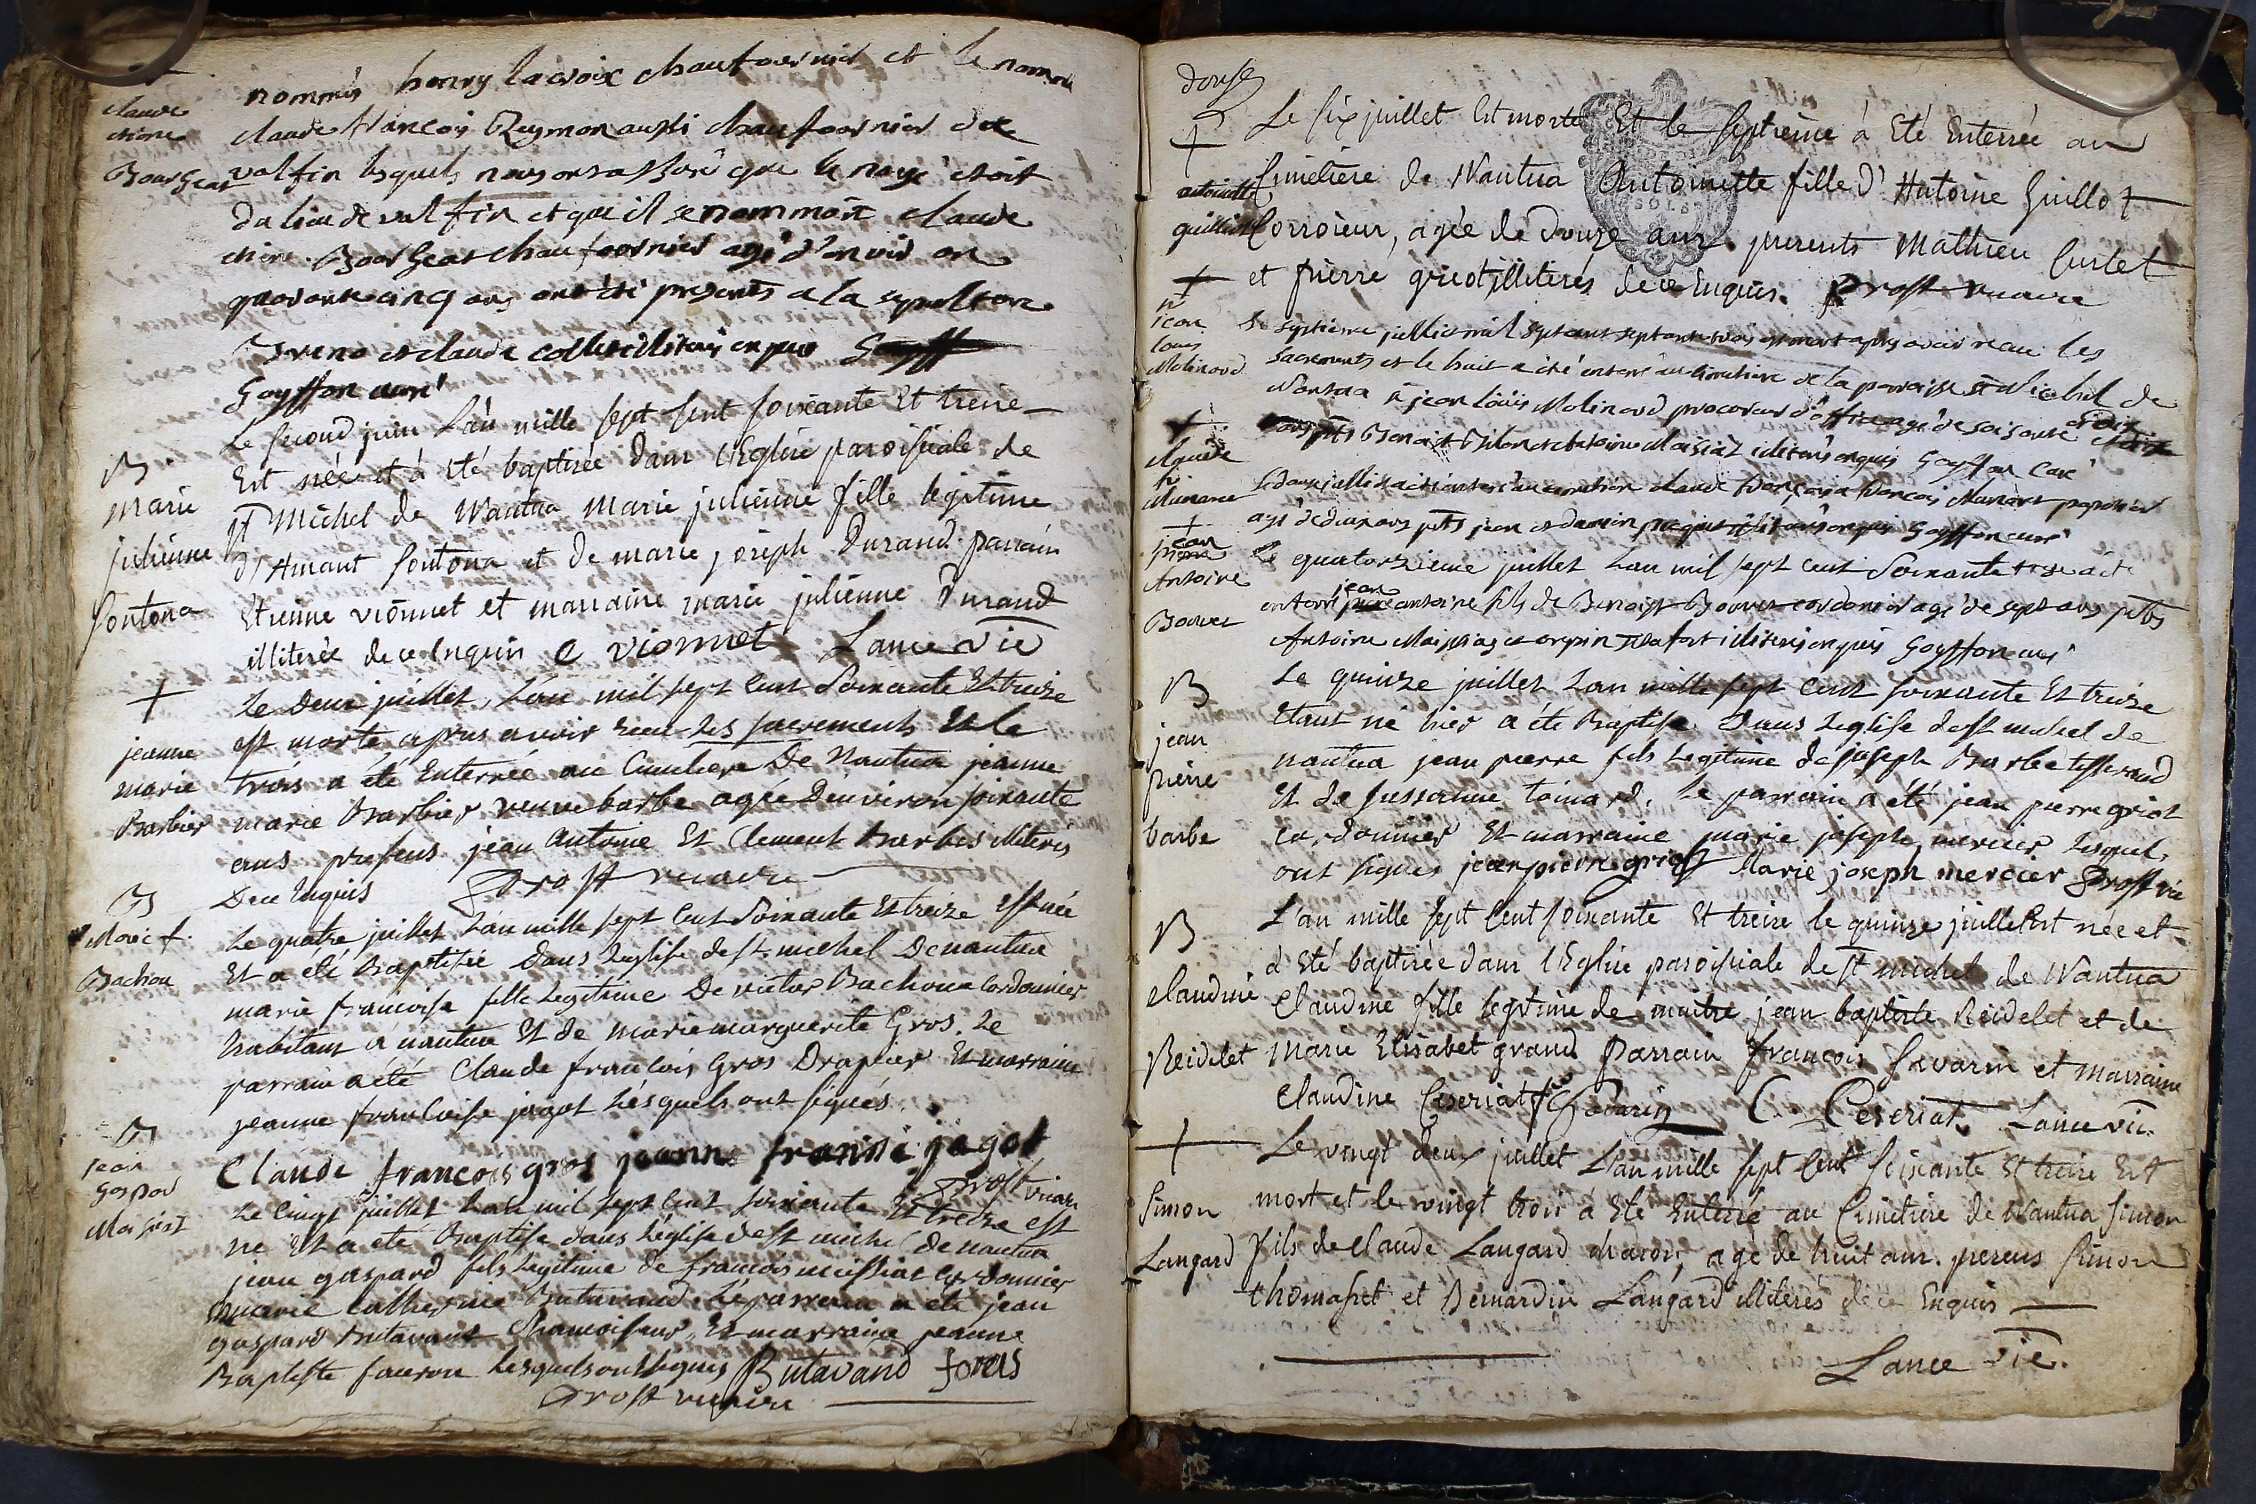 claude
Bourgeat
nommés henry lacroix chaufournier et le nommé
claude françois Reymon aussi chaufournier de
valfin lesquels nous ont assuré que le noyé étoit
du lieu de valfin et que il se nommoit claude
Bourgeat chaufournier agé d'environ
quarante cinq ans ont été presents a la sepulture
et claude collet illiterés enquis
Goyffon curé
B
marie
julienne
fontona
Le second juin L'an mille sept sent soixante Et treise
Est née et à Eté baptisée dans l'Eglise paroissiale de
st Michel de Nantua Marie julienne fille legitime
d'Amant fontona et de marie joseph Durand parrain
Etienne viōnnet et marraine marie julienne Durand
illiterée de ce Enquis C vionnet Lance vic
+
jeanne
marie
Barbier
Le deux juillet, L'an mil sept Cent Soixante Et treize
est morte apres avoir recu les sacrements Et le
trois a été Enterrée au Cimetiere De Nantua jeanne
marie Barbier veuve barbe agée denviron soixante
ans presens jean Antoine Et Clement Barbes illiterés
Dece Enquis Prost vicaire
B
Marie f.
Bachou
Le quatre juillet L'an mille sept Cent Soixante Et treize est née
Et a eté Baptisée Dans L'eglise de st. michel De nantua
marie francoise fille Legitime De victor Bachoux Cordonnier
habitant à nantua Et de marie marguerite Gros. Le
parrain a été Claude françois Gros Drapier Et marraine
jeanne francoise jagot Lésquels ont signés.
Claude francois gros jeanne franise jagot
Prost vicaire
B
jean
Gaspar
Le Cinq juillet L'an mil sept Cent soixante Et treize est
né Et a eté Baptisé dans L'église de st michel De nantua
jean gaspard fils Legitime de francois Cordonnier
marie catherine Butavand. Le parrain a eté jean
gaspard Butavand Chamoiseur, Et marraine jeanne
Baptiste Lesquels ont signés Butavand
Prost vicaire
douse
+
antoinette
guilliot
Le six juillet Est morte Et le septième à Eté Enterrée au
Cimetière de Nantua Antoinette fille D'Antoine Guillot
Corroieur, agée de Douze ans. presents Mathieu Curlet
et pierre griot illiterés de ce Enquis. Prost vicaire
+
jean
louis
Molinard
Le septieme juillet mil sept cent septante trois est mort apres avoir recu les
sacrements et le huit a été enterré au cimetiere de la paroisse st Michel de
Nantua jean Louis Molinard procureur d'office agé de soisante
pnts Benoit et Antoine illiterés enquis Goyffon Curé
+
claude
juillet a été enterré au cimetiere claude françois a françois
agé de deux ans pnts jean et illiterés enquis Goyffon curé
+
jean
pierre
Antoine
Bouvet
Le quatorzieme juillet L'an mil sept cent Soixante treze a été
enterré jean antoine fils de Benoist Bouvet cordonnier agé de sept ans pnts
Antoine et illiterés enquis Goyffon curé
B
jean
pierre
barbe
Le quinze juillet L'an mille sept Cent soixante Et treize
Etant né hier a été Baptisé Dans L'eglise de st michel de
nantua jean pierre fils Legitime de joseph Barbe tisserand
Et de Sussanne toinard. Le parrain a été jean pierre griot
Cordonnier Et marraine marie joseph mercier Lesquels
ont signés jean pierre griot Marie joseph mercier Prost vic
B
Claudine
Reidelet
L'an mille sept Cent soixante Et treise le quinze juillet Est née et
à Eté baptisée dans l'Eglise paroissiale de st michel de Nantua
Claudine fille legitime de maitre jean baptiste Reidelet et de
Marie Elisabet grand Parrain francois Savarin et Marraine
Claudine Ceseriat Savarin C. Ceseriat Lance vic.
+
Simon
Langard
Le vingt deux juillet L'an mille sept Cent soixante Et treise Est
mort et le vingt trois à Eté Enterré au Cimetière de Nantua Simon
fils de Claude Langard macon, agé de huit ans. presens Simon
thomasset et Bernardin Langard illiterés de ce Enquis
Lance vic.